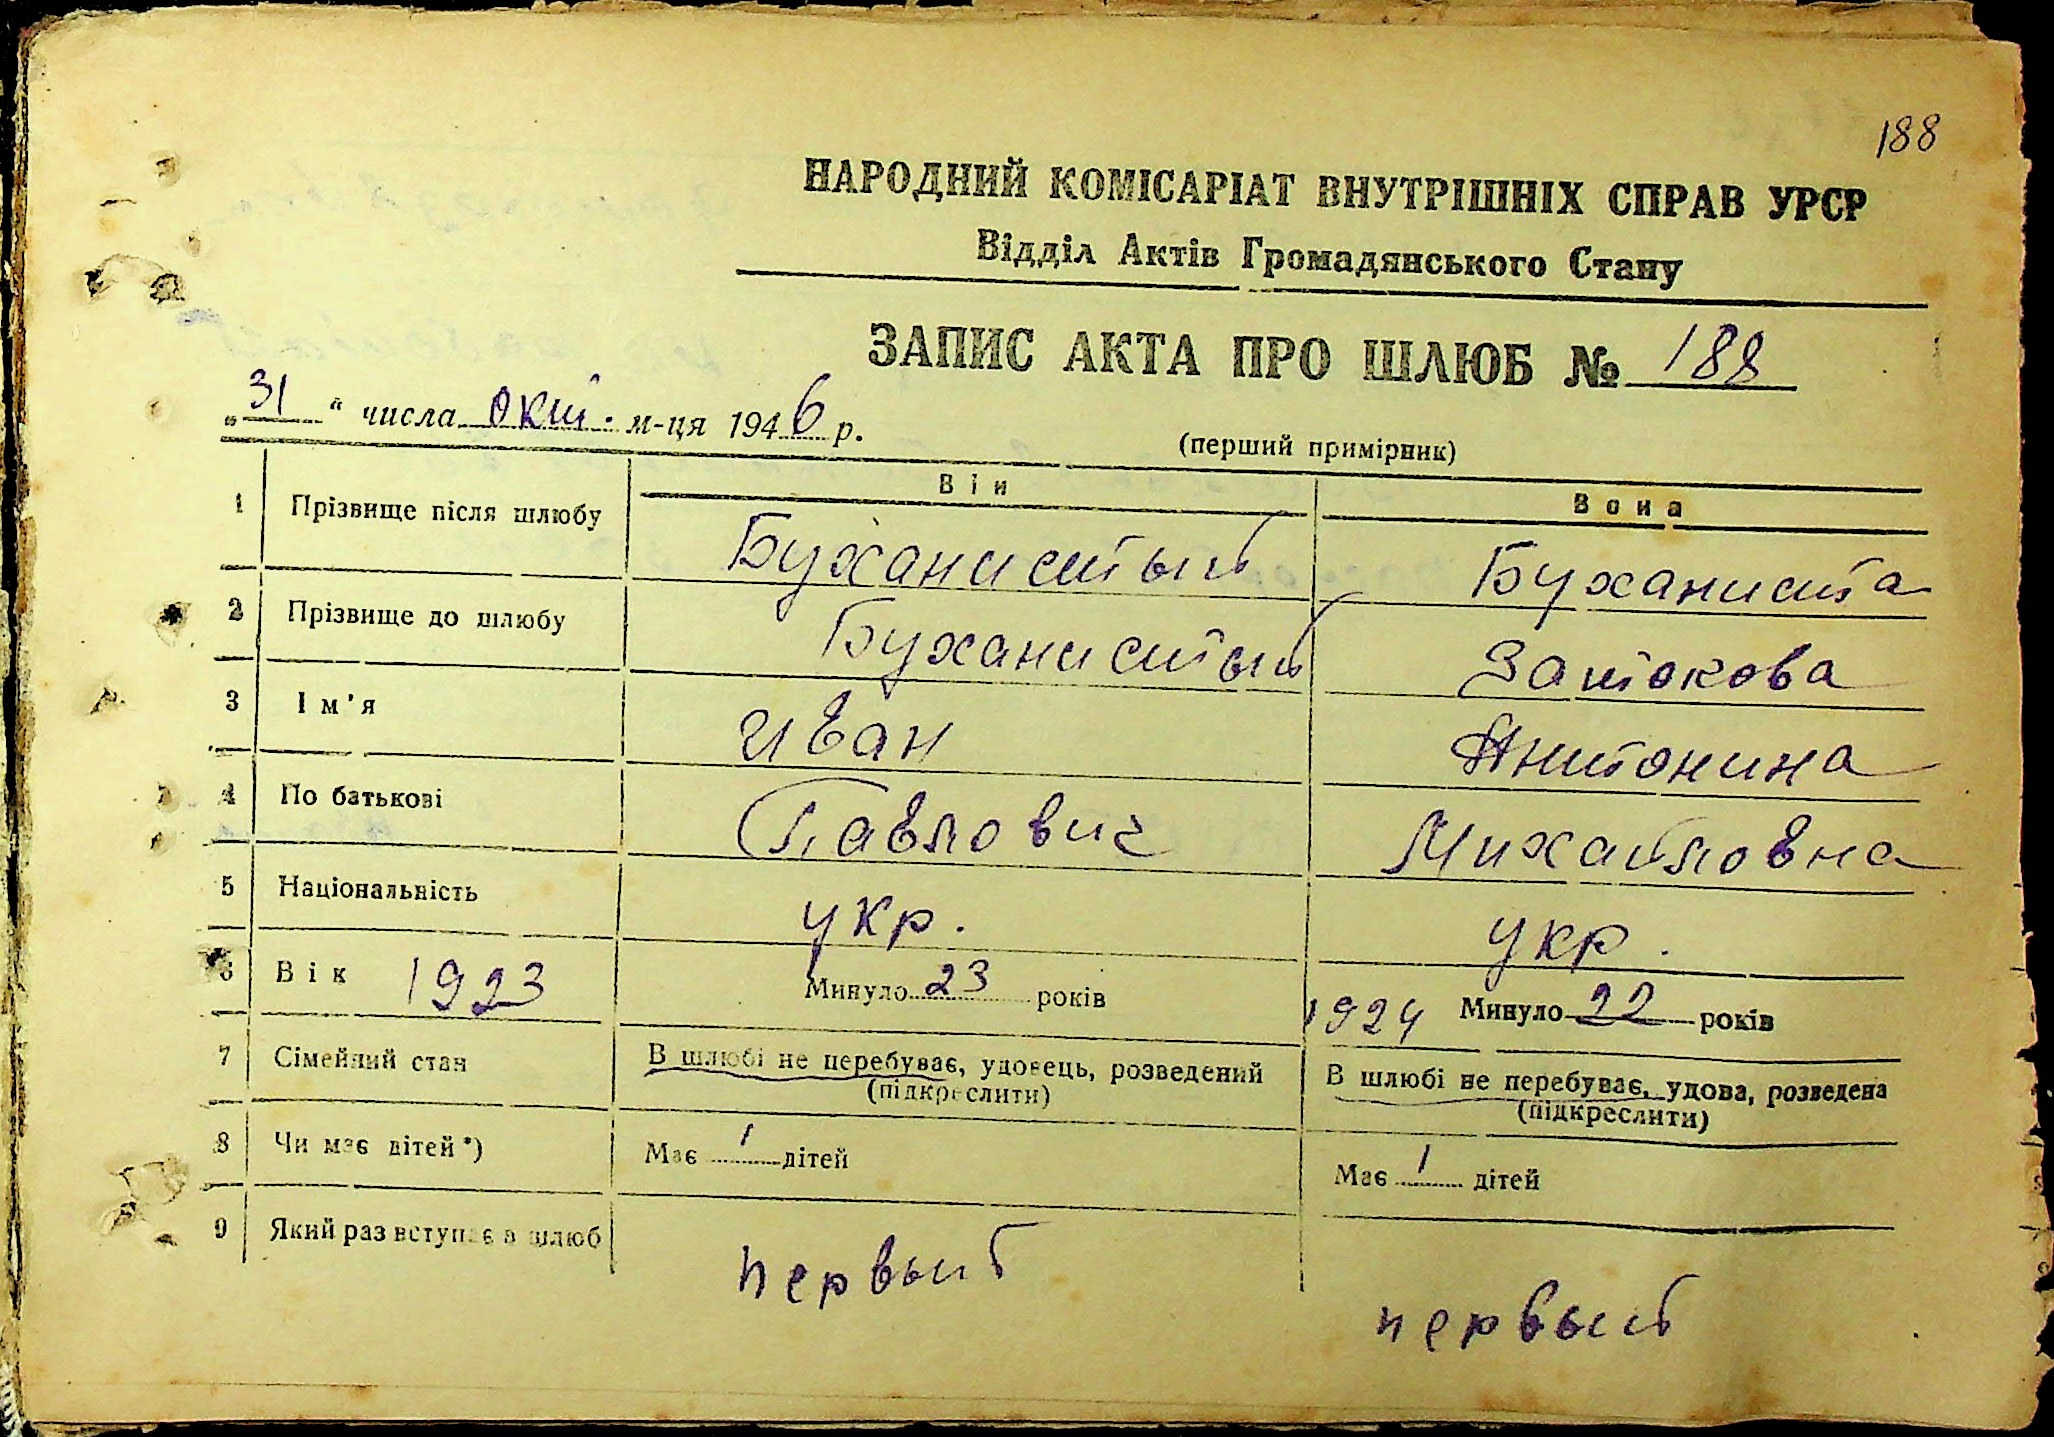 188
НАРОДНИЙ КОМІСАРІАТ ВНУТРІШНІХ СПРАВ УРСР
Відділ Актів Громадянського Стану
ЗАПИС АКТА ПРО ШЛЮБ № 188
„31“ числа окт. м-ця 1946 р.
(перший примірник)
Він Вона
1 Прізвище після шлюбу Буханистый Буханиста
2 Прізвище до шлюбу Буханистый Затокова
3 Ім'я Иван Антонина
4 По батькові Павлович Михайловна
5 Національність укр. укр.
6 Вік 1923 Минуло 23 років 1924 Минуло 22 років
7 Сімейний стан В шлюбі не перебуває, удовець, розведений В шлюбі не перебуває, удова, розведена
(підкреслити) (підкреслити)
8 Чи має дітей*) Має 1 дітей Має 1 дітей
9 Який раз вступає в шлюб первый первый